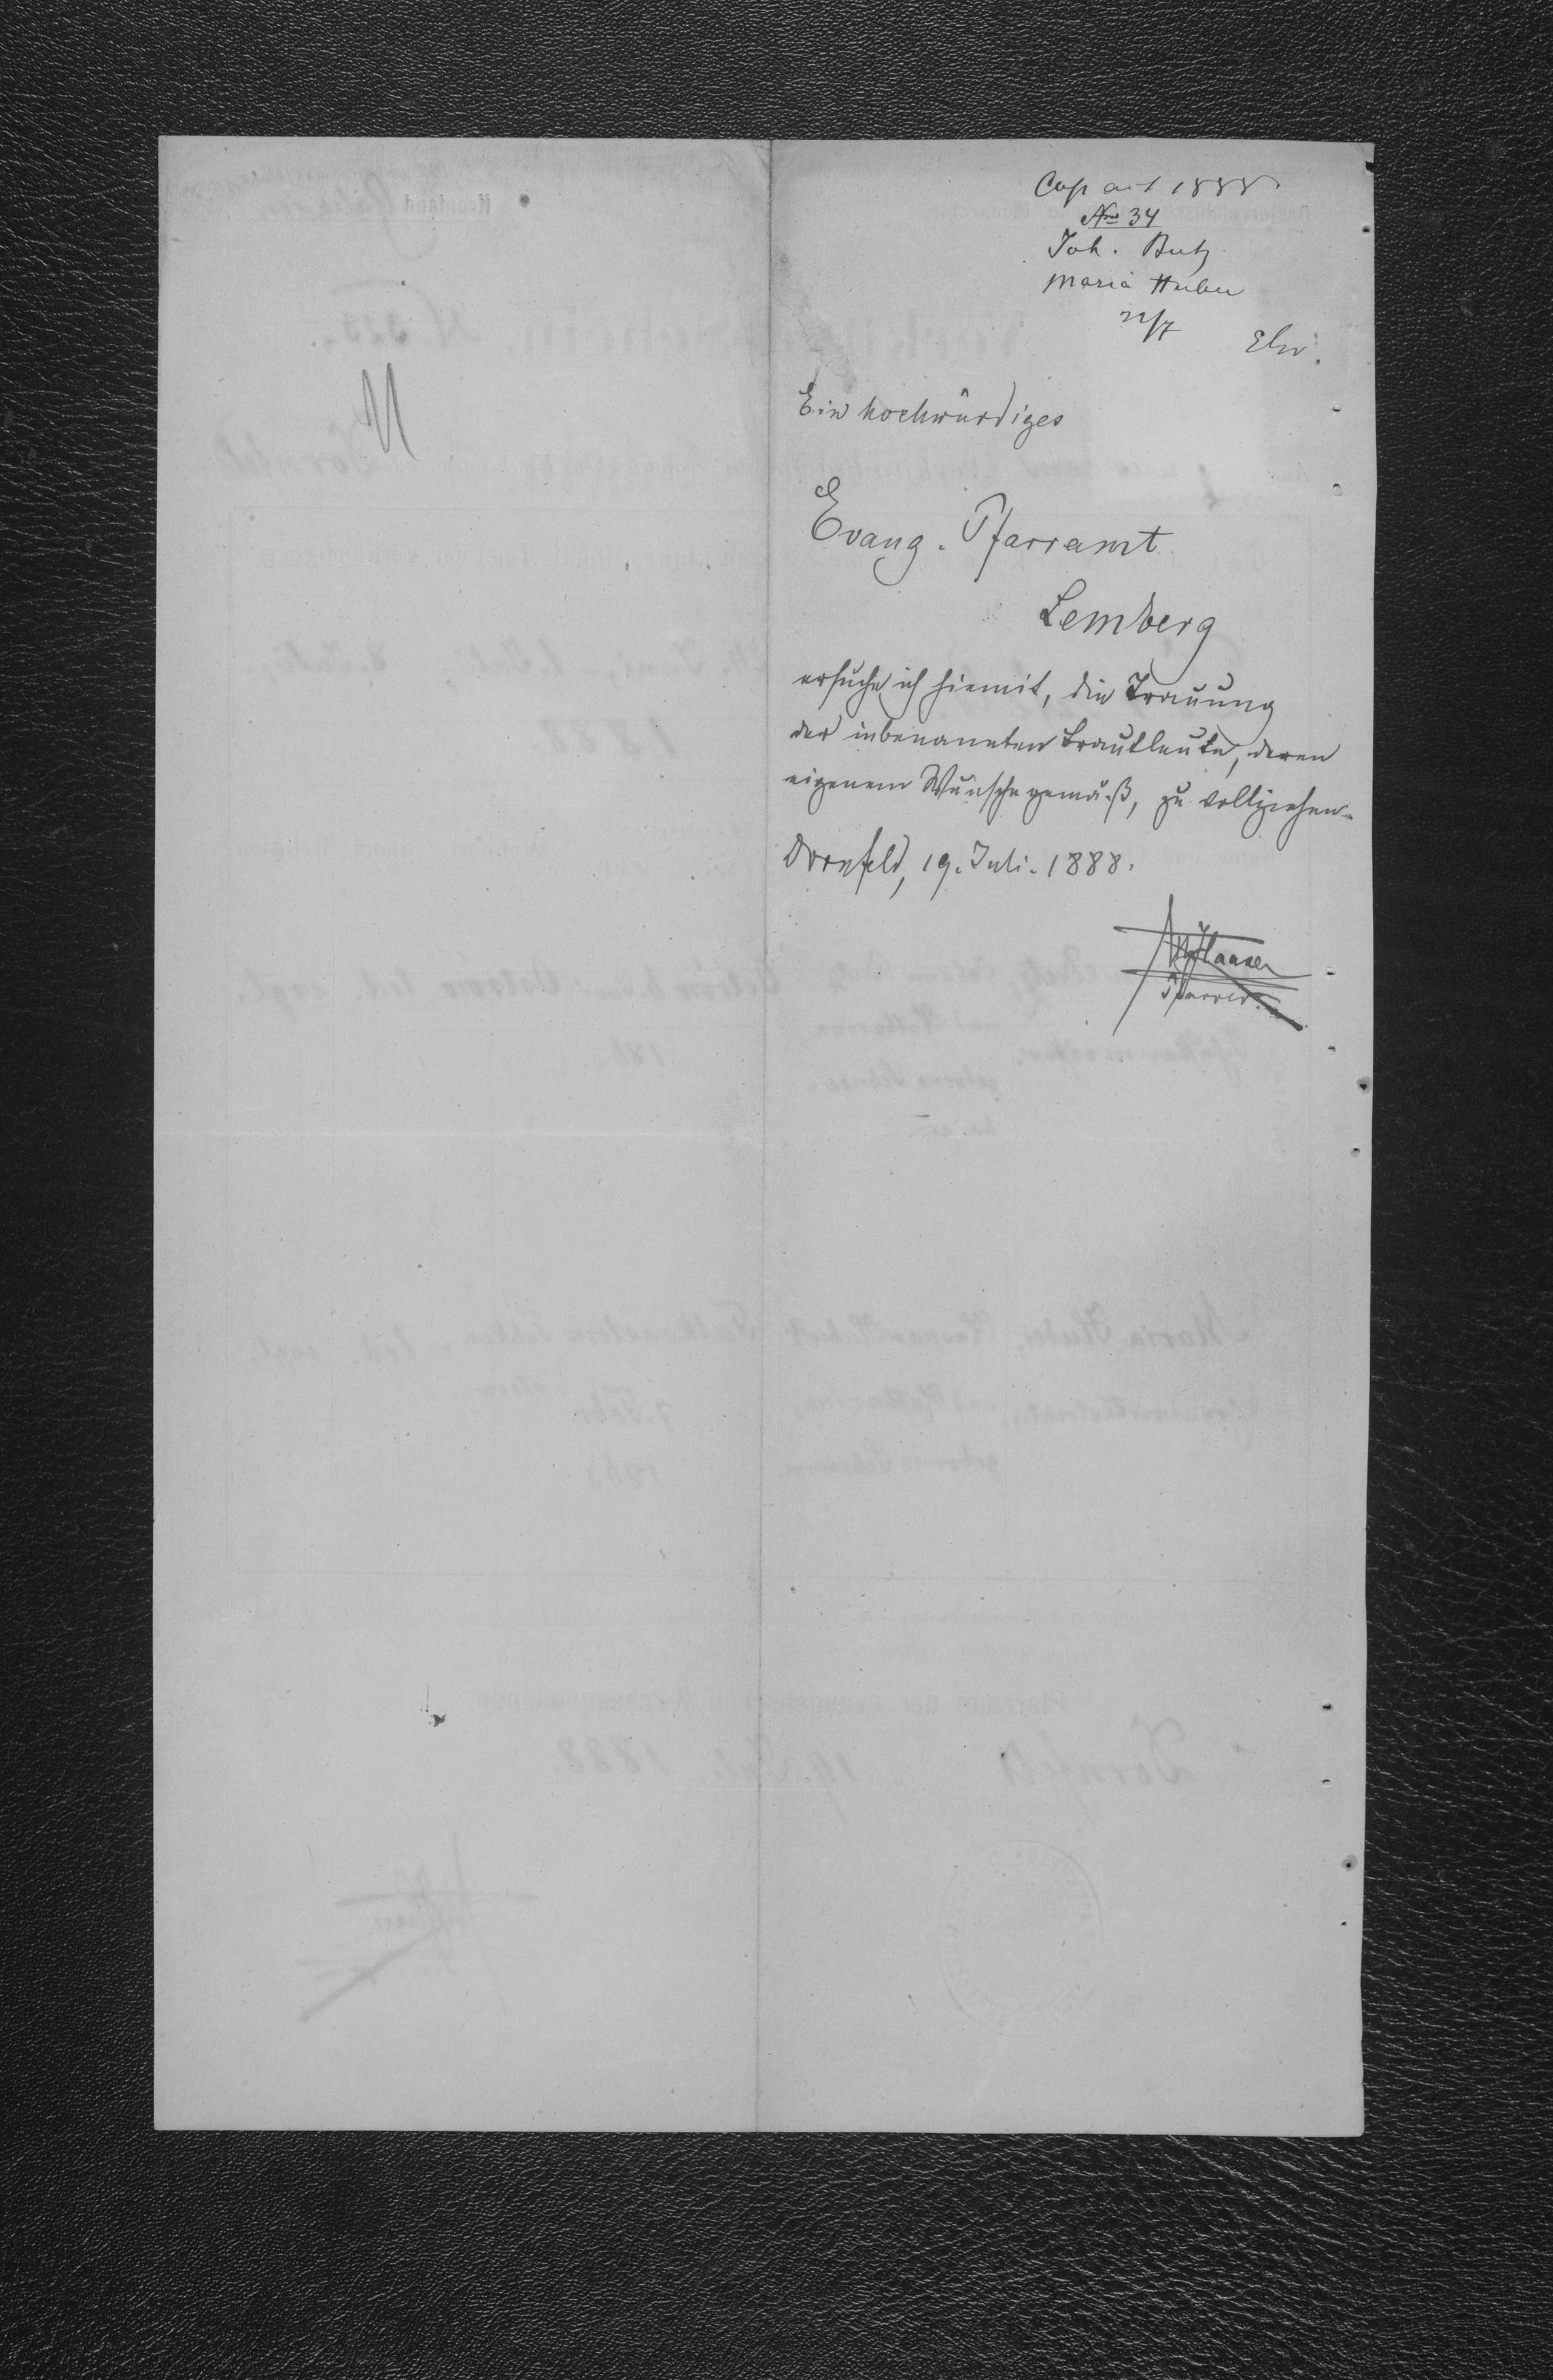 Cop act 1888
Nro 34
Joh. Butz
Maria Huber
22/7
Ein hochwürdiges
Evang. Pfarramt
Lemberg
ersuche ich hiemit, die Trauung
der inbenannten Brautleute, deren
eigenem Wunsche gemäß, zu vollziehen.
Dornfeld, 19. Juli. 1888.
Pfarrer.